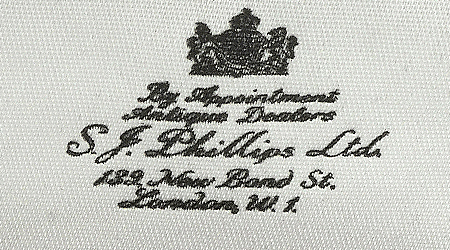 By Appointment
Antique Dealers
S.J. Phillips Ltd.
139, New Bond St.
London, W.1.